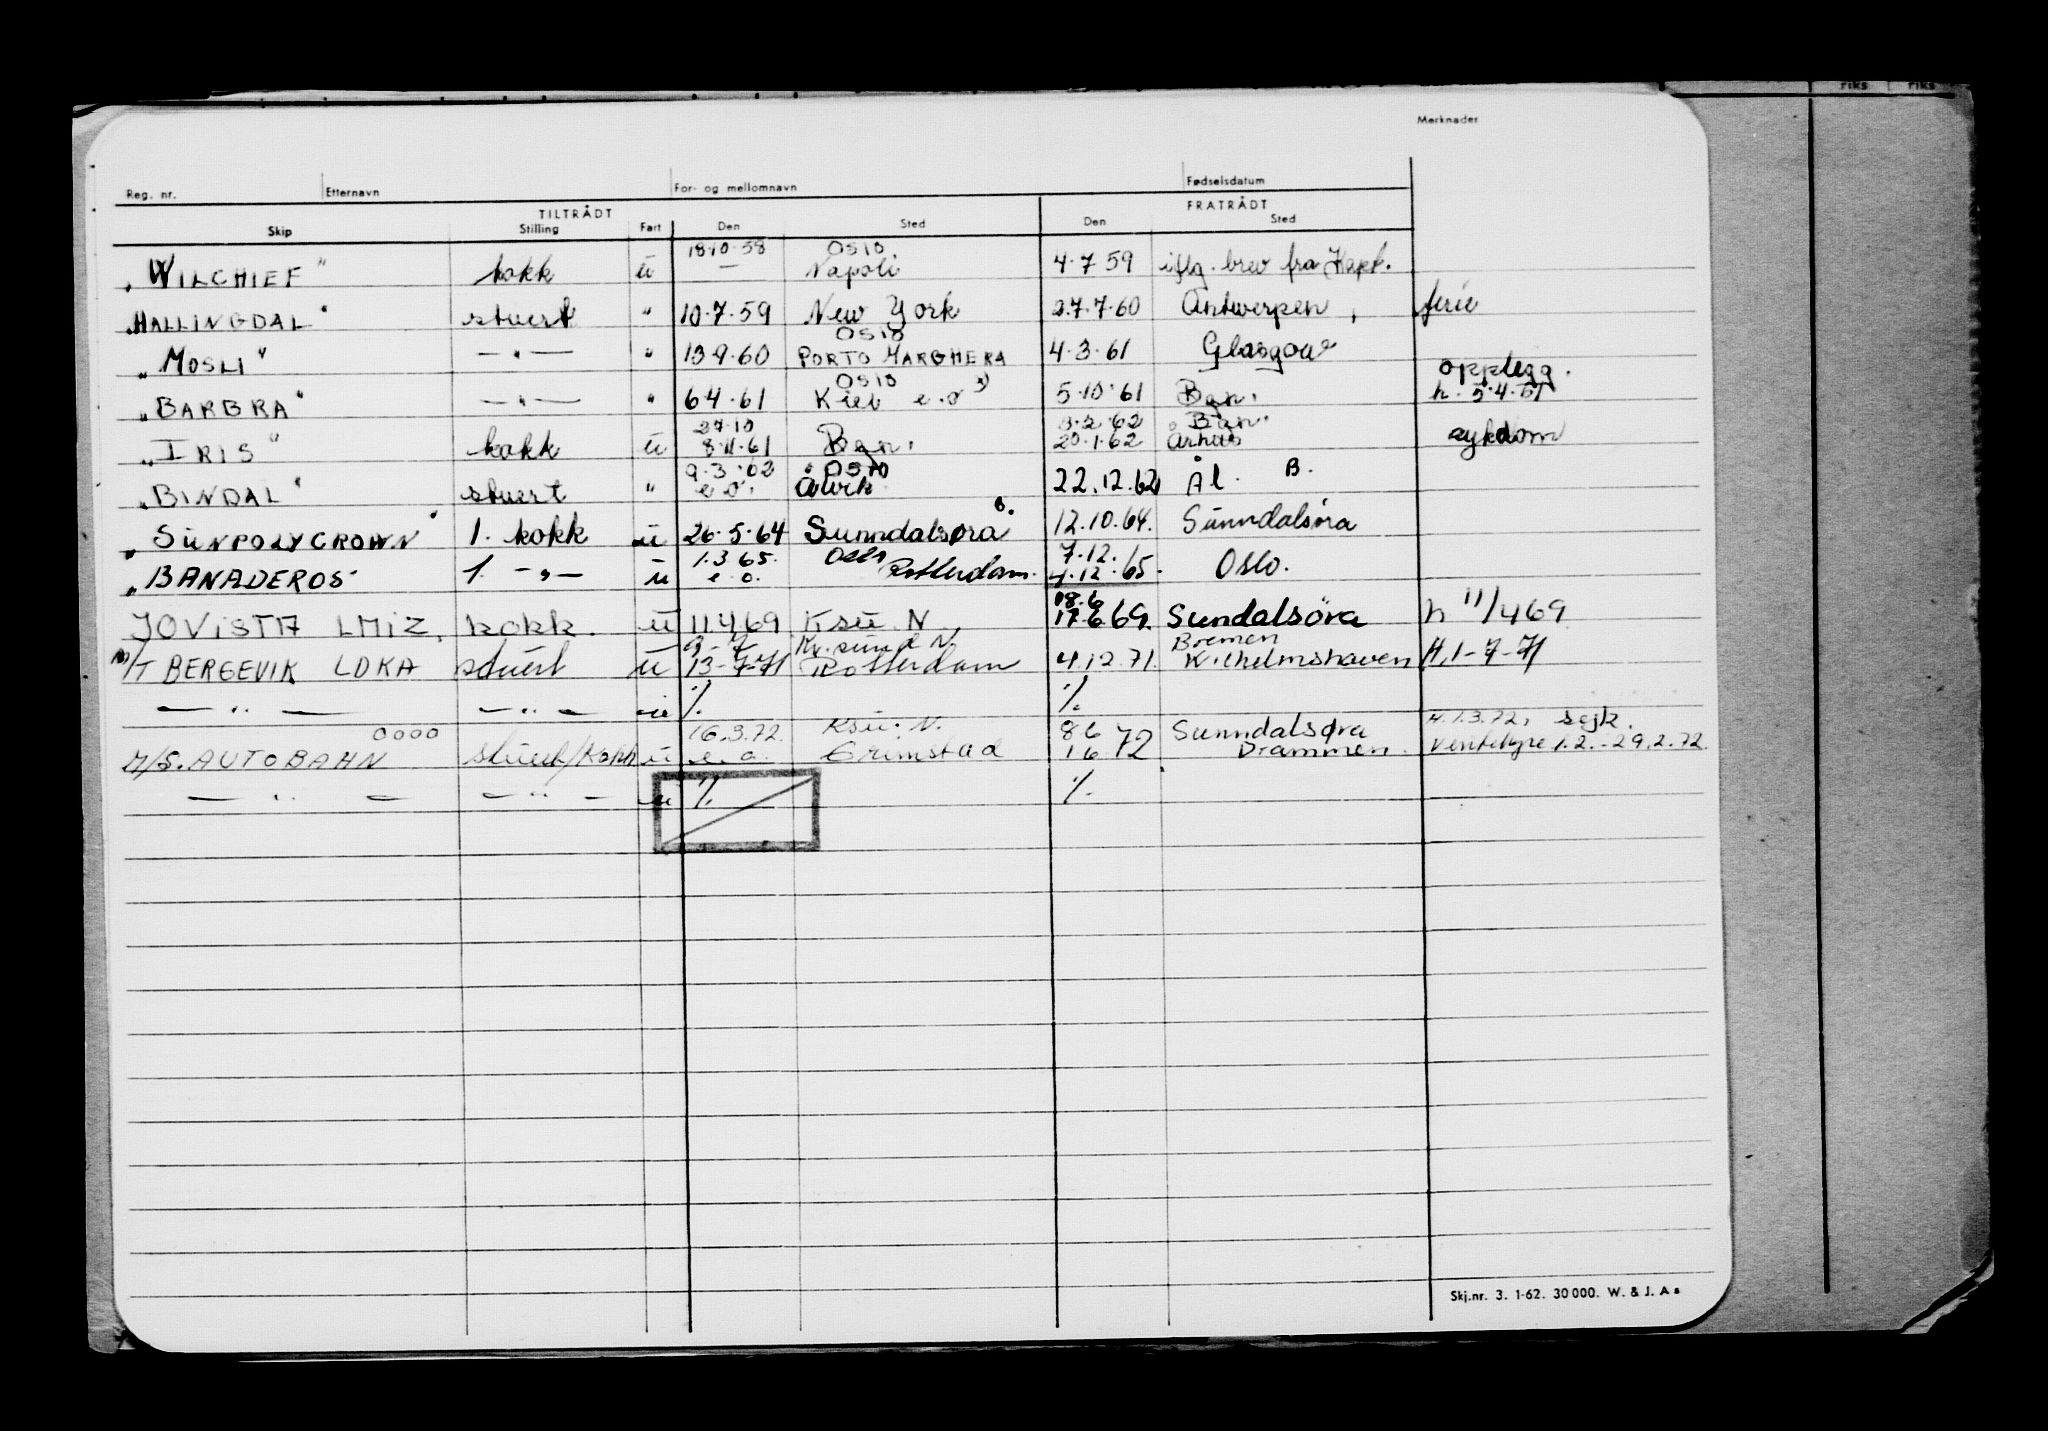 riks riks
Merknader
Reg. nr. Etternavn For- og mellomnavn Fødselsdatum
TILTRÅDT FRATRÅDT
Skip Stilling Fart Den Sted Den Sted
18·10·58 OSlO
"WILCHIEF" kokk ü — Napoli 4·7 59 iflg. brev fra Kapt.
"HALLINGDAL" stuert " 10·7·59 New York 27·7·60 Antwerpen, ferie
OSlO
"MOSLI" —"— " 13·9·60 PORTO MARGHERA 4·3·61 Glasgow
OSlO opplegg.
"BARBRA" —"— " 6·4·61 Kiel e.o x) 5·10·61 Bgn. h. 5·4·61
27·10 3·2·62 Bgn.
"IRIS" kokk ü 8·11·61 Bgn. 20·1·62 Århus sykdom
9·3·62 OSlO
"BINDAL" stuert " e.o. Ålvik 22.12.62 Ål. B.
"SUNPOLYCROWN" 1. kokk ü 26·5·64 Sunndalsøra B. 12.10.64. Sunndalsøra
1.3.65. Oslo 7.12.
"BANADEROS" 1. —"— ü e.o. Rotterdam. 4.12.65. Oslo.
18.6
JOVISTA LMIZ. kokk. ü 11.4.69 Ksü. N 17.6.69. Sundalsöra h 11/4 69
9-7- Kr.sund N. Bremen
M/T BERGEVIK LDKA stuert ü 13-7-71 Rotterdam 4.12.71. Wilhelmshaven H.1-7-71
— " — — " — ü ٪ ٪
OOOO 16.3.72. Ksü. N. 8 6 Sunndalsøra H.1.3.72, sejk.
M/S. AUTOBAHN stuert/Kokk ü e.o. Grimstad 1 6 72 Drammen. Ventehyre 1.2.-29.2.72.
— " — — " — ü ٪ ٪
Skj.nr. 3. 1-62. 30 000. W. & J. A s